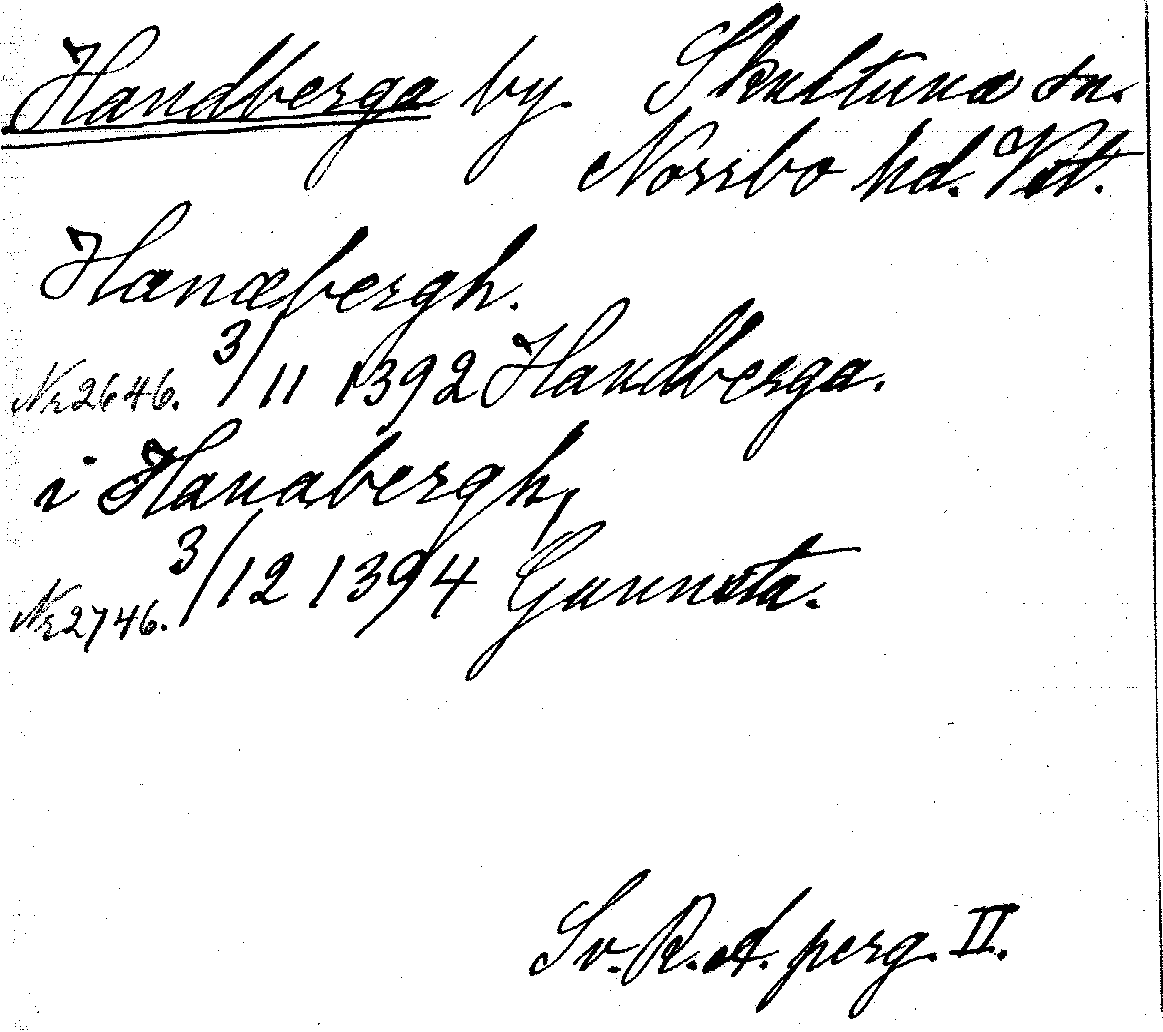 Handberga by. Skultuna sn.
Norrbo hd. Vstl.
Hanæbergh.
Nr 2646. 3/11 1392 Handberga.
i Hanabergh,
Nr 2746. 3/12 1394 Gunnsta.
Sv. R. A. perg. II.